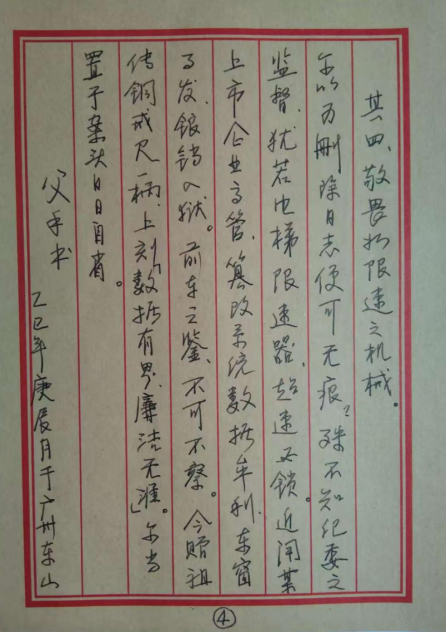 其四、敬畏如限速之机械。
尔以为删除日志便可无痕？殊不知纪委之
监督，犹若电梯限速器，超速必锁。近闻某
上市企业高管，篡改系统数据牟利，东窗
事发，锒铛入狱。前车之鉴，不可不察。今赠祖
传铜戒尺一柄，上刻「数据有界，廉洁无涯」。尔当
置于案头日日自省。
父手书
乙巳年庚辰月于广州东山
④